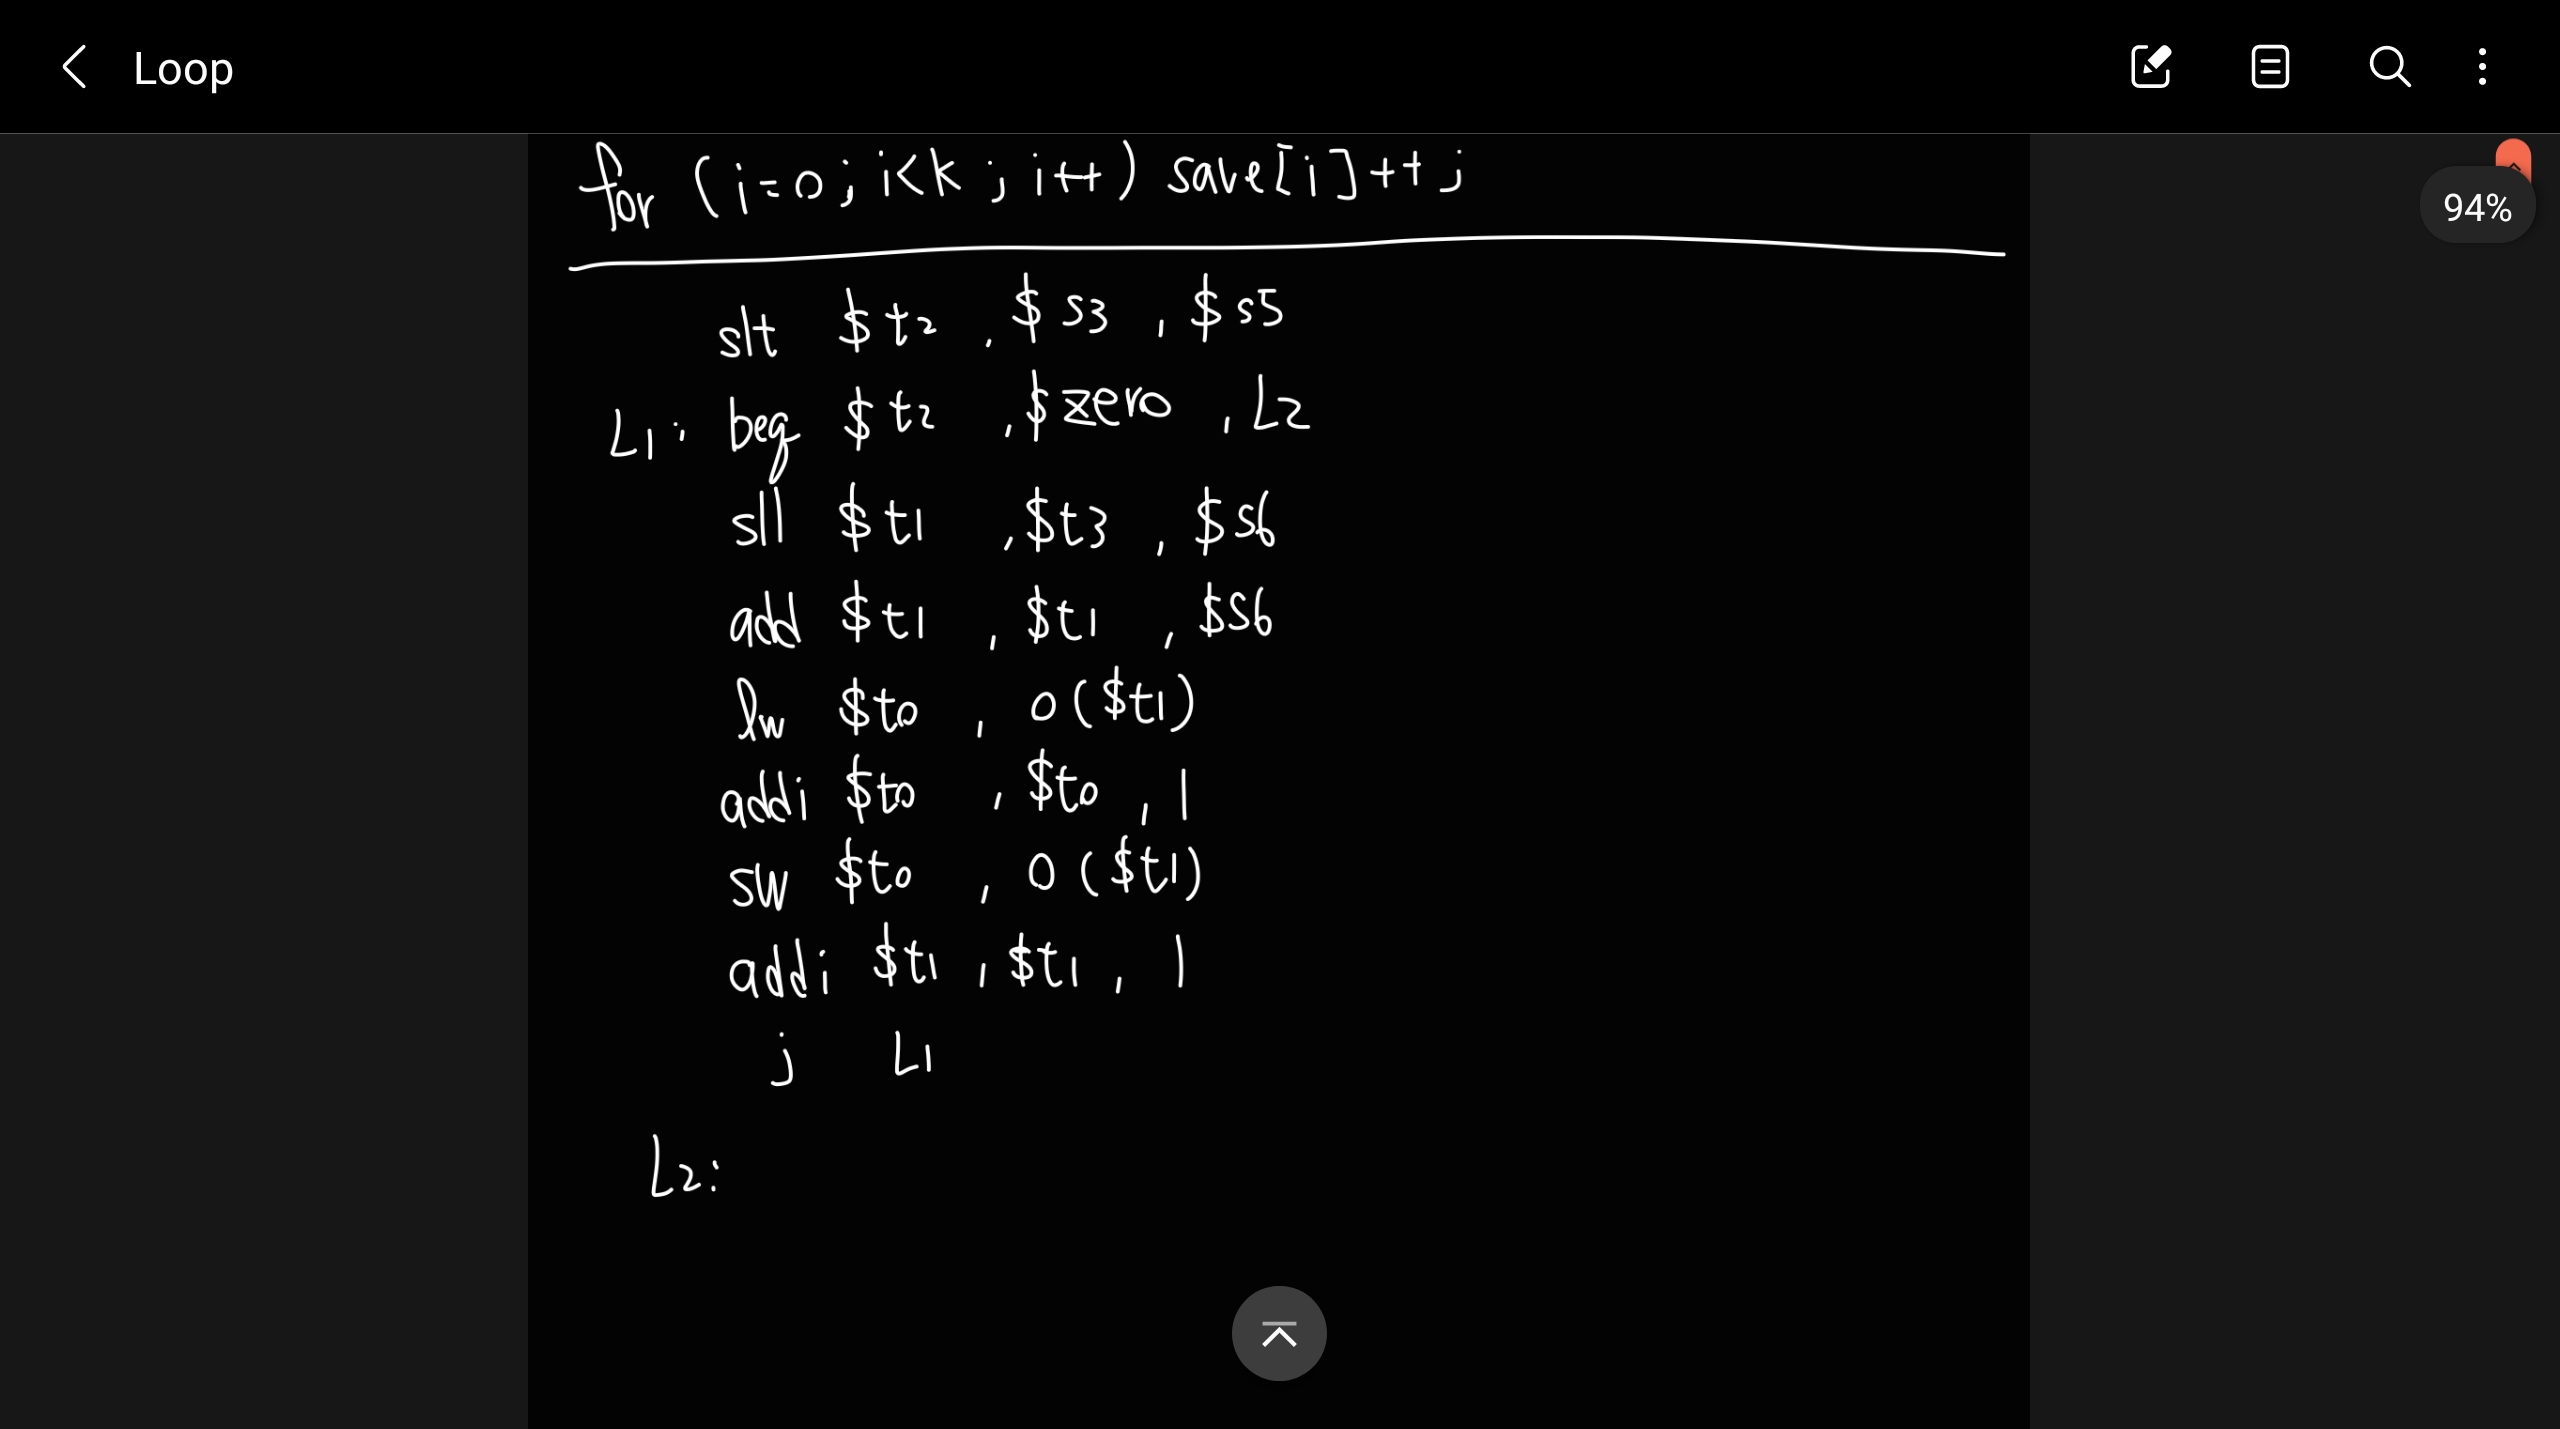 Loop
94%
for (i=0; i<k; i++) save[i]++;
slt $t2, $s3, $s5
L1: beq $t2, $zero, L2
sll $t1, $t3, $s6
add $t1, $t1, $s6
lw $t0, 0($t1)
addi $t0, $t0, 1
sw $t0, 0($t1)
addi $t1, $t1, 1
j L1
L2: